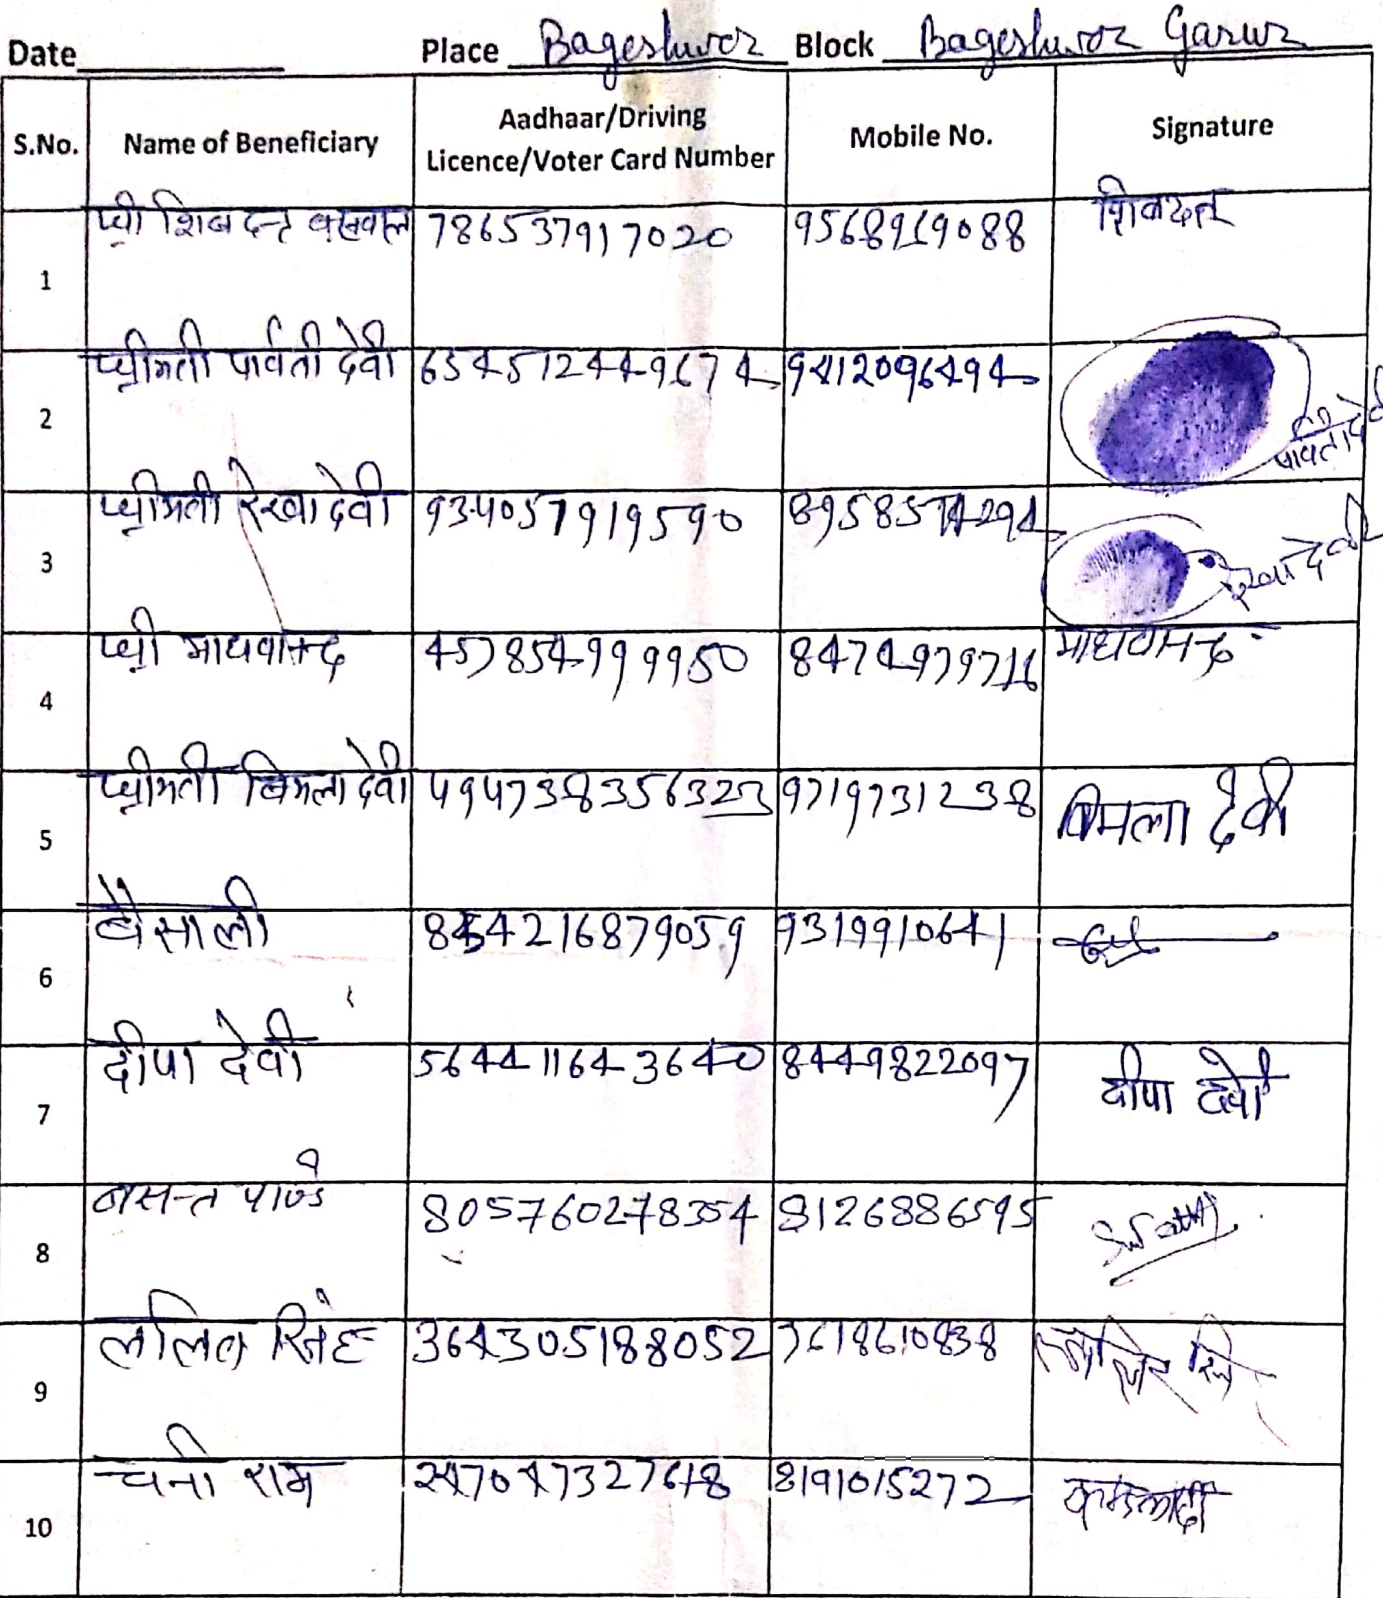 Date Place Bageshwor Block Bageshwor Garur
S.No. Name of Beneficiary Aadhaar/Driving Licence/Voter Card Number Mobile No. Signature
1 श्री शिब दत्त 786537917020 9568969088 शिवदत्त
2 श्रीमती पार्वती देवी 634512449674 9412096494 पार्वती देवी
3 श्रीमती रेखा देवी 934057919590 रेखा देवी
4 श्री माधवानन्द 457854999950 8474979716 माधवानन्द
5 श्रीमती बिमला देवी 494738356323 9719731238 बिमला देवी
6 बैसाली 9319910641
7 दीपा देवी 564411643640 8449822097 दीपा देवी
8 बसन्त पाण्डे 805760278354 8126886595
9 ललित सिंह 364305188052 7618610838
10 चनी राम 8191015272